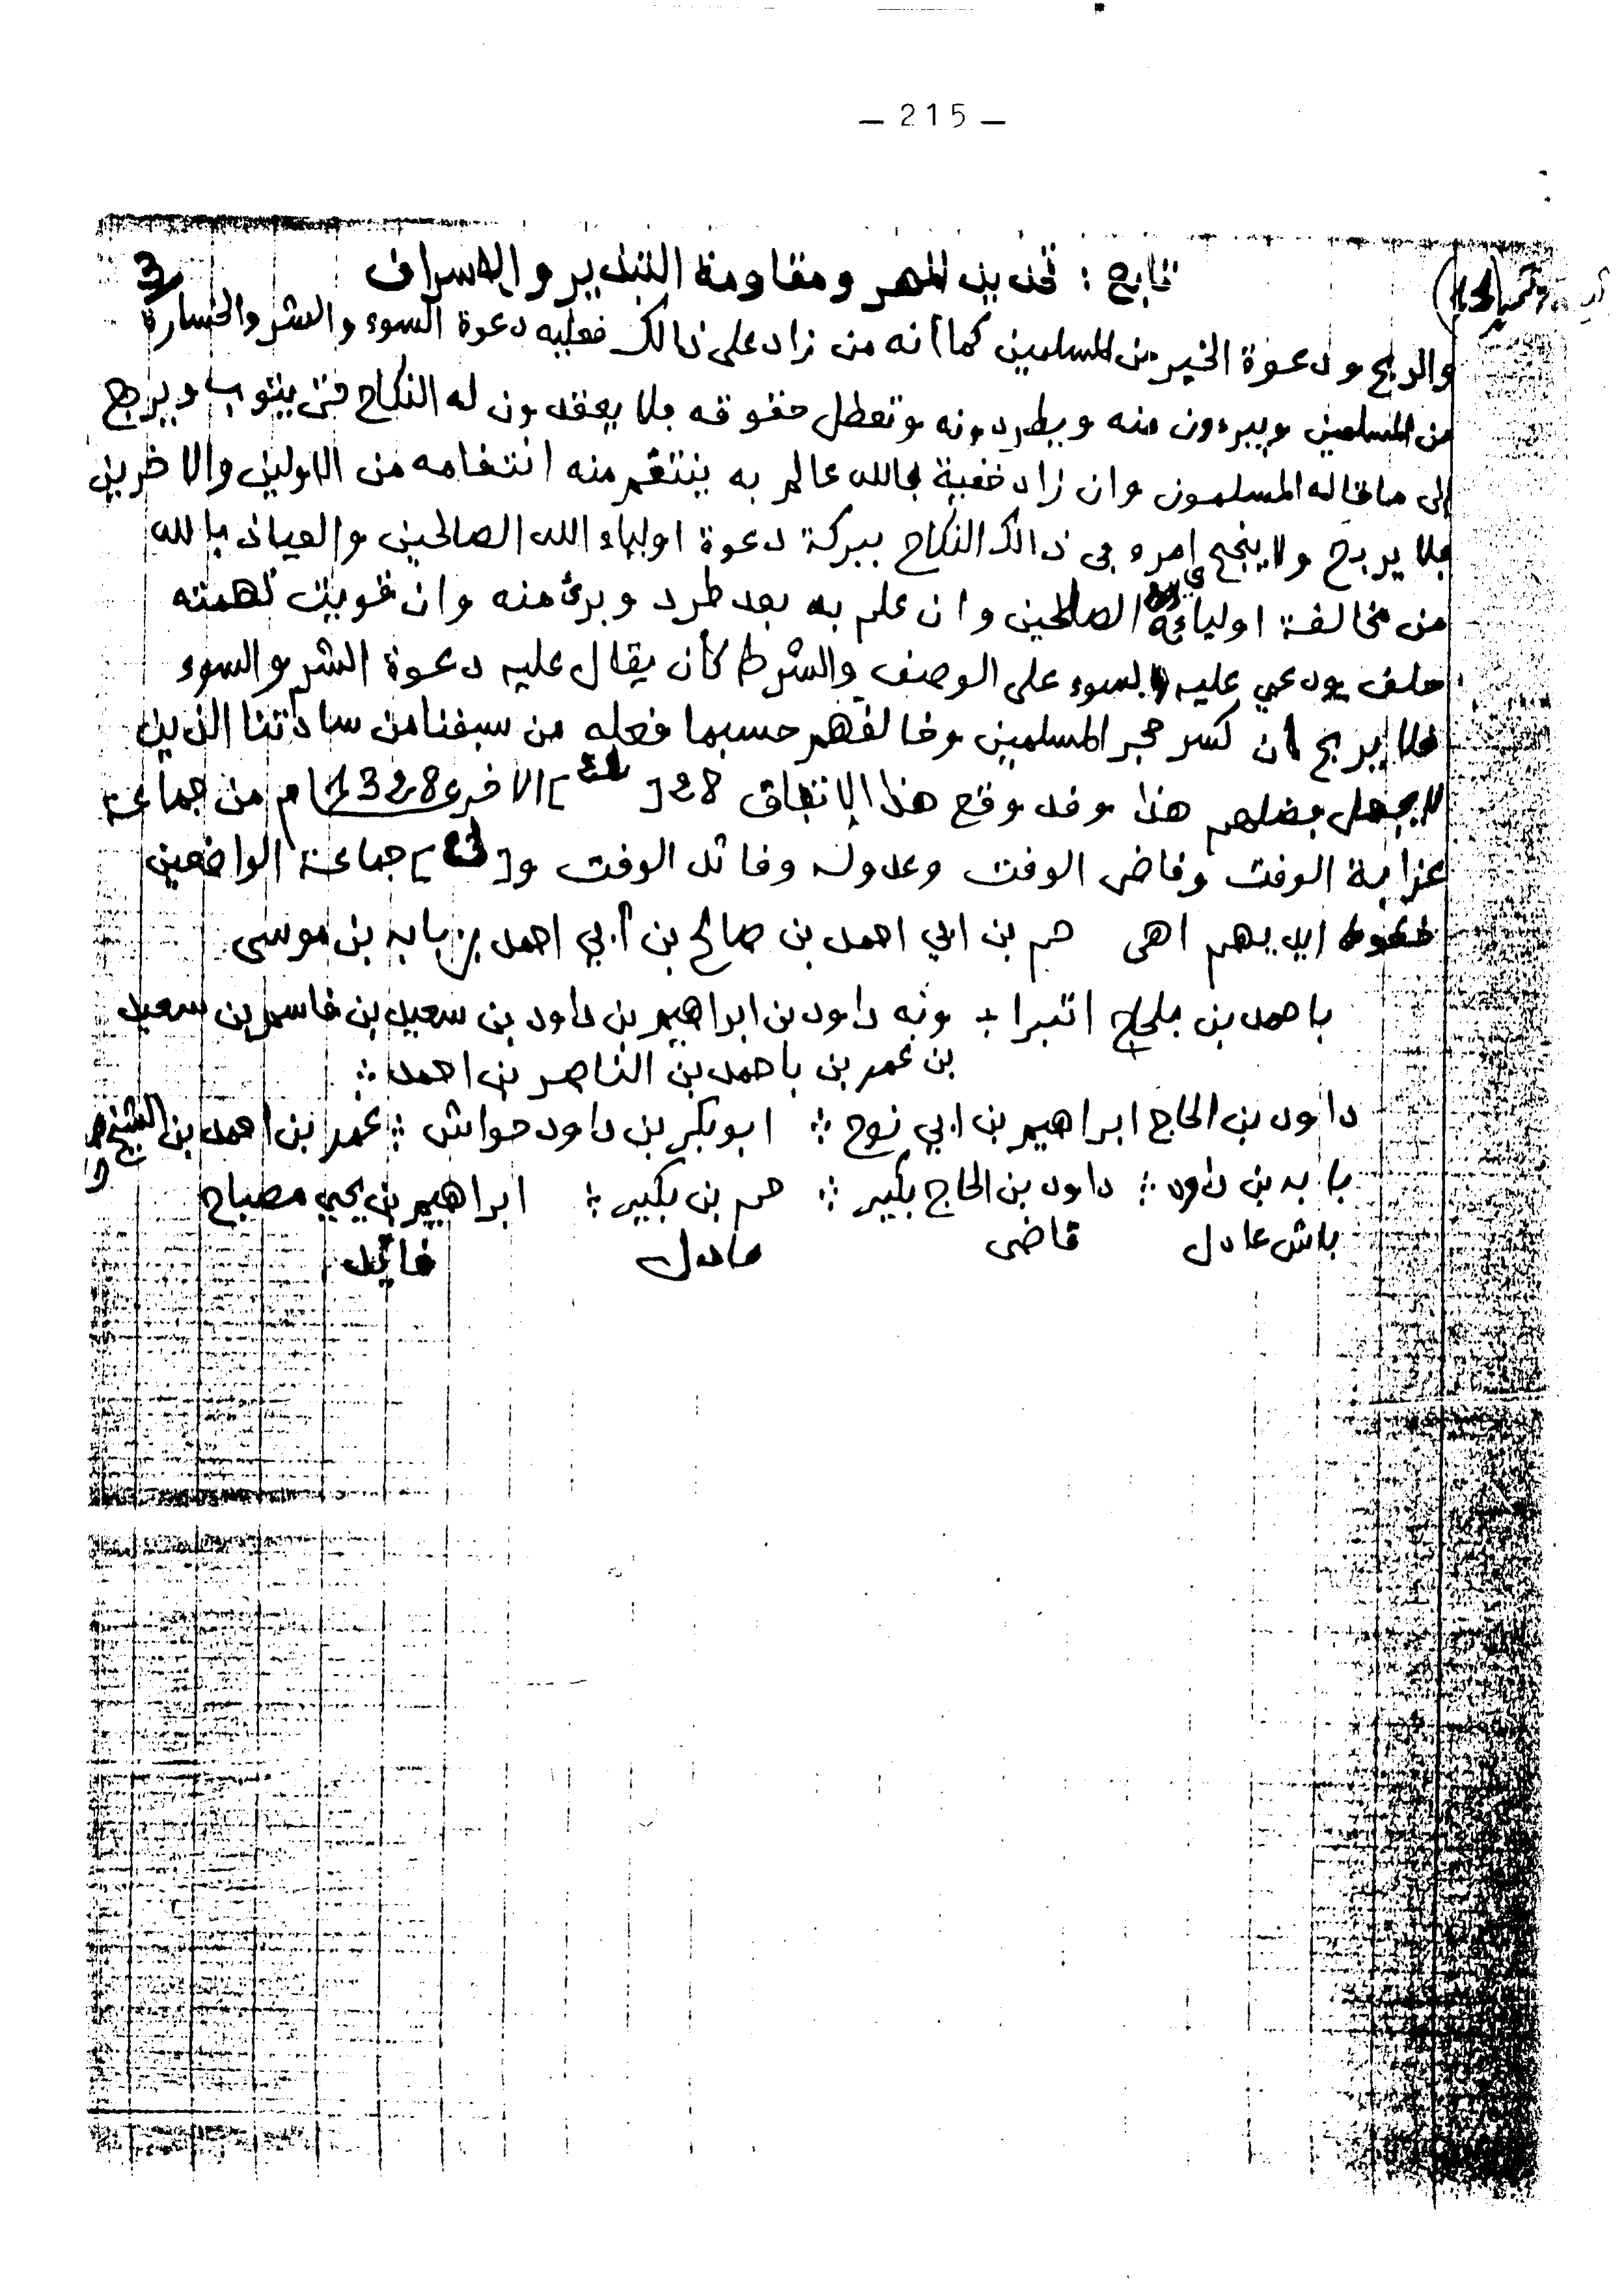 — 215 —
تابع : تحديد المهر ومقاومة التبذير والاسراف
3
والربح ودعوة الخير من المسلمين كما أنه من زاد على ذالك فعليه دعوة السوء والشر والخسارة
من المسلمين ويبرءون منه ويطردونه وتعطل حقوقه فلا يعقدون له النكاح حتى يتوب ويرجع
إلى ما قاله المسلمون وان زاد خفية فالله عالم به ينتقم منه انتقامه من الاولين والاخرين
فلا يربح ولا ينجح امره في ذالك النكاح ببركة دعوة اولياء الله الصالحين والعياذ بالله
من مخالفة اوليائه الصالحين وان علم به بعد طرد وبرئ منه وان قويت تهمته
حلف يودعي عليه بالسوء على الوصف والشرط كأن يقال عليه دعوة الشر والسوء
فلا يربح ان كسر حجر المسلمين وخالفهم حسبما فعله من سبقنا من سادتنا الذين
لا يجهل فضلهم هذا وقد وقع هذا الاتفاق 28 [ ] الاخرى 1328 ام من جماعة
عزابة الوقت وقاضي الوقت وعدوله وقائد الوقت و[ ] جماعة الواضعين
خطوط ايديهم اهى حم بن ابي احمد بن صالح بن أبي احمد بن بابه بن موسى
باحمد بن بلحاج اتبرا ونه داود بن ابراهيم بن داود بن سعيد بن قاسم بن سعيد
بن عمر بن باحمد بن الناصر بن احمد :
داود بن الحاج ابراهيم بن ابي نوح : ابوبكر بن داود حواش : عمر بن احمد بن الشيخ
بابه بن داود : داود بن الحاج بكير : حم بن بكير : ابراهيم بن يحيي مصباح
باش عادل قاضى عادل قائد